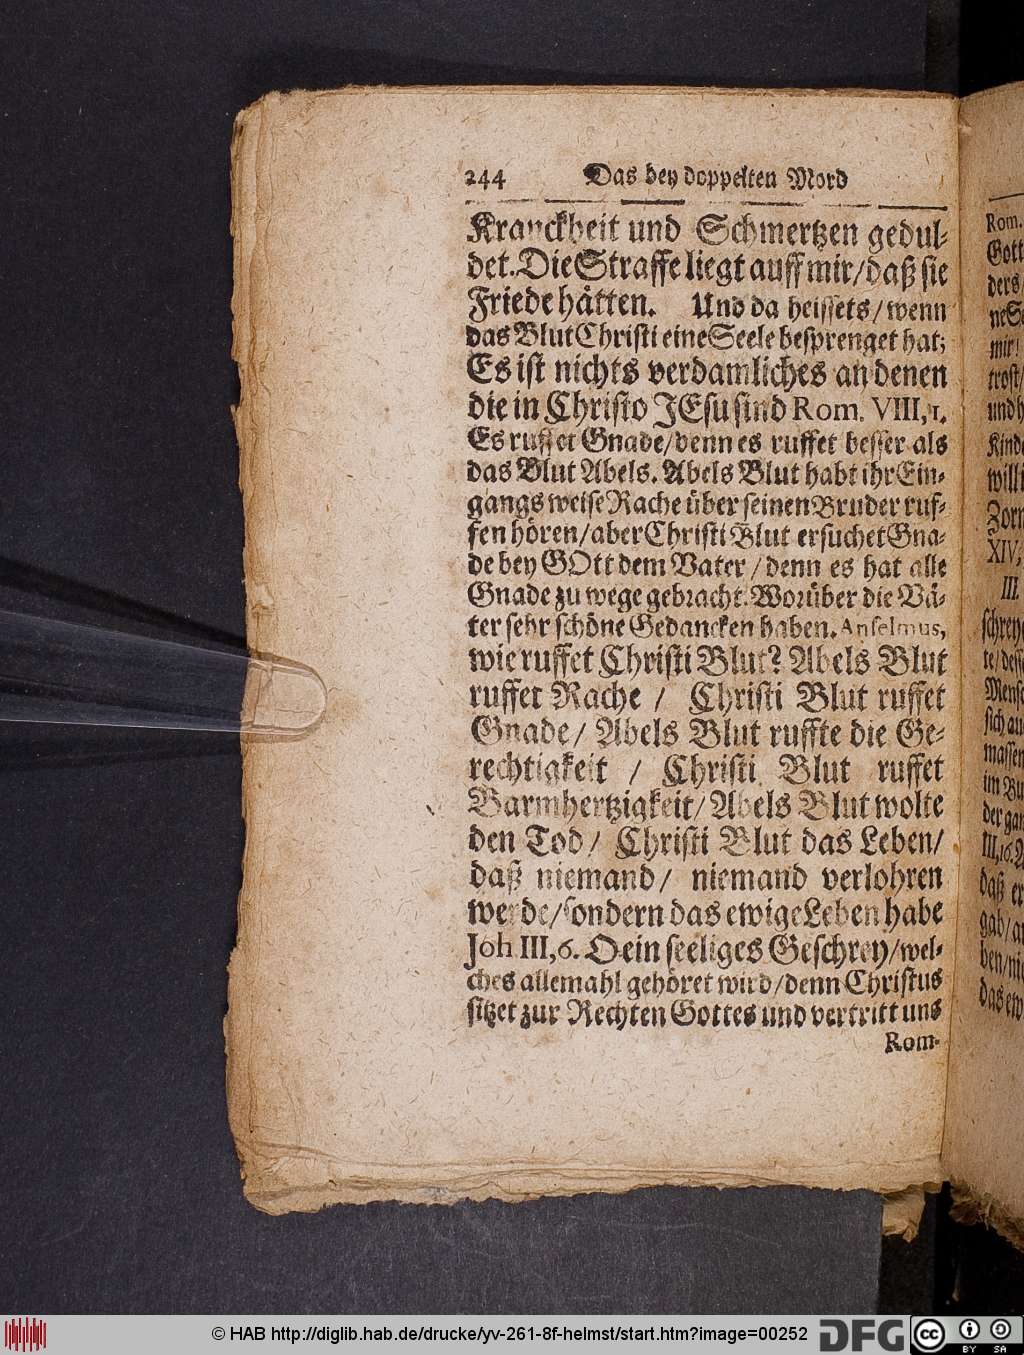 244 Das bey doppelten Mord
Kranckheit und Schmertzen gedul-
det. Die Straffe liegt auff mir/ daß sie
Friede hätten. Und da heissets/ wenn
das Blut Christi eine Seele besprenget hat;
Es ist nichts verdamliches an denen
die in Christo JEsu sind Rom. VIII, 1.
Es ruffet Gnade/ denn es ruffet besser als
das Blut Abels. Abels Blut habt ihr Ein-
gangs weise Rache über seinen Bruder ruf-
fen hören/ aber Christi Blut ersuchet Gna-
de bey GOtt dem Vater/ denn es hat alle
Gnade zu wege gebracht. Worüber die Vä-
ter sehr schöne Gedancken haben. Anselmus,
wie ruffet Christi Blut? Abels Blut
ruffet Rache / Christi Blut ruffet
Gnade/ Abels Blut ruffte die Ge-
rechtigkeit / Christi Blut ruffet
Barmhertzigkeit/ Abels Blut wolte
den Tod/ Christi Blut das Leben/
daß niemand/ niemand verlohren
werde/ sondern das ewige Leben habe
Joh III, 6. O ein seeliges Geschrey/ wel-
ches allemahl gehöret wird/ denn Christus
sitzet zur Rechten Gottes und vertritt uns
Rom-
Rom.
Gott
ders/
ne S
mir!
trost/
und h
Kinde
will
Zorn
XIV,
III.
schrey
te/ dess
Mensc
sich au
massen
im Bu
der gan
III, 16.
daß er
gab/ a
ben/ nie
das ew
© HAB http://diglib.hab.de/drucke/yv-261-8f-helmst/start.htm?image=00252
DFG
cc
BY SA